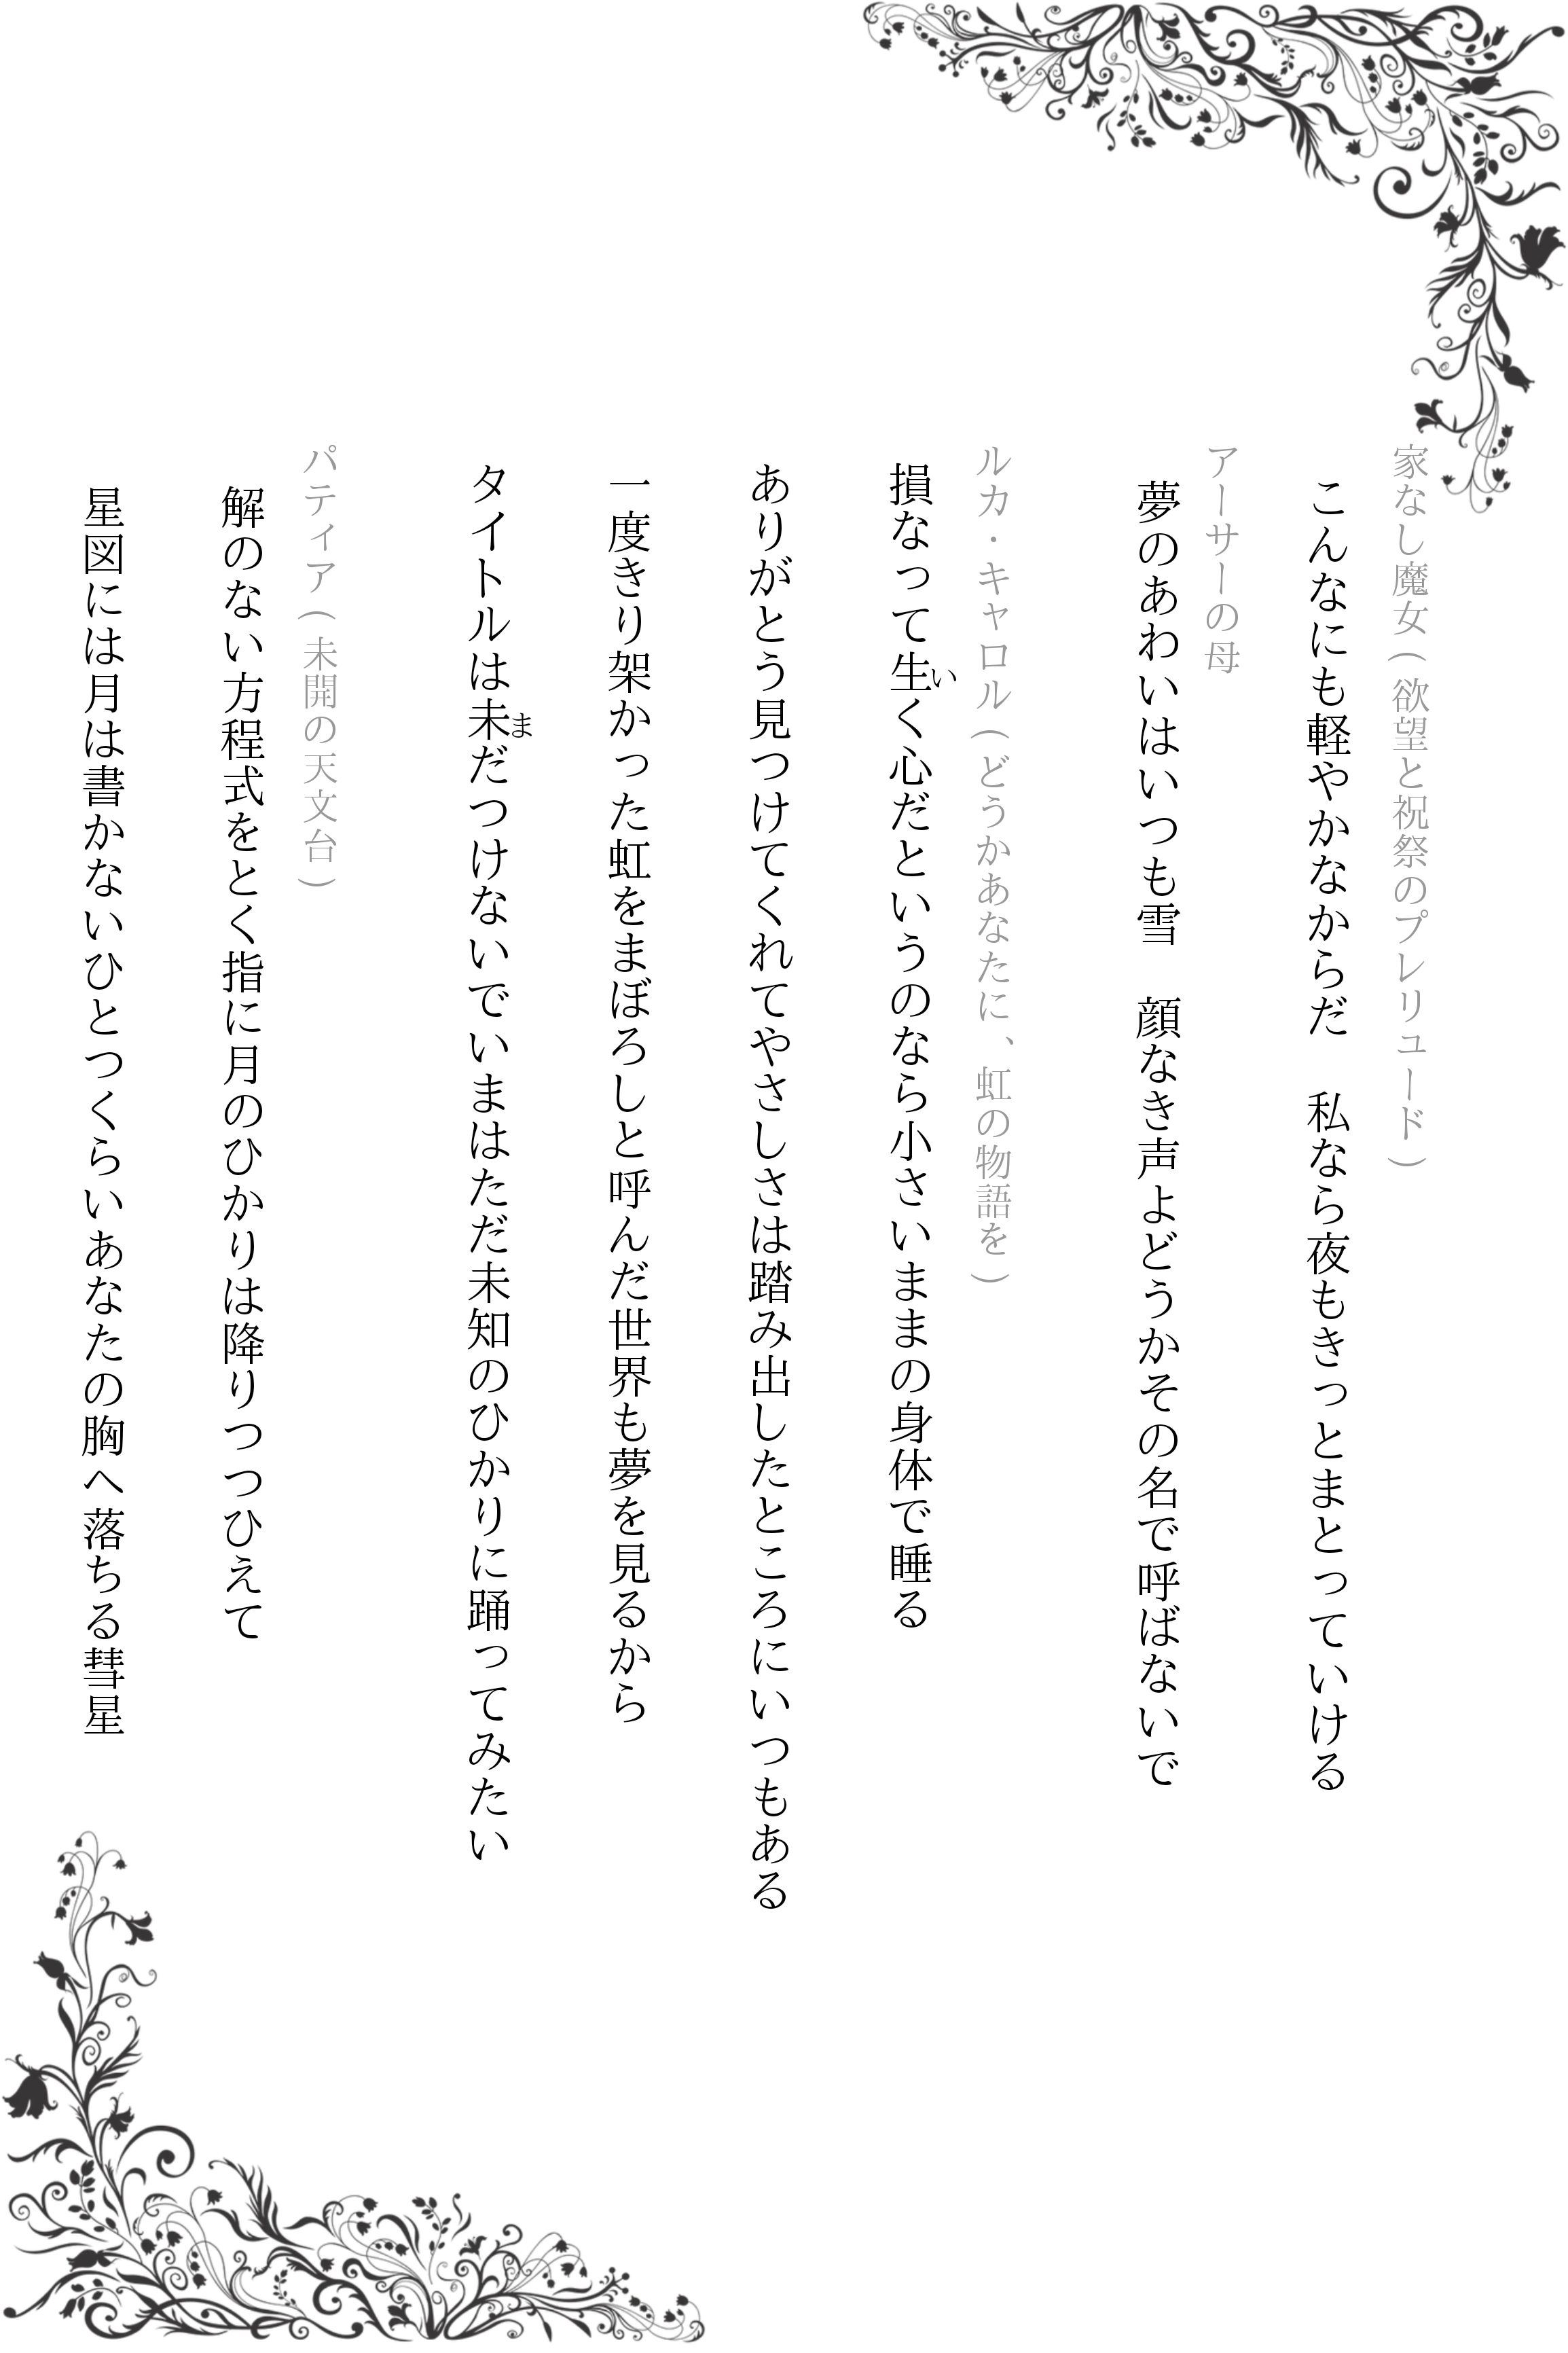 家なし魔女(欲望と祝祭のプレリュード)
こんなにも軽やかなからだ　私なら夜もきっとまとっていける
アーサーの母
夢のあわいはいつも雪　顔なき声よどうかその名で呼ばないで
ルカ・キャロル(どうかあなたに、虹の物語を)
損なって生く心だというのなら小さいままの身体で睡る
い
ありがとう見つけてくれてやさしさは踏み出したところにいつもある
一度きり架かった虹をまぼろしと呼んだ世界も夢を見るから
タイトルは未だつけないでいまはただ未知のひかりに踊ってみたい
ま
パティア(未開の天文台)
解のない方程式をとく指に月のひかりは降りつつひえて
星図には月は書かないひとつくらいあなたの胸へ落ちる彗星